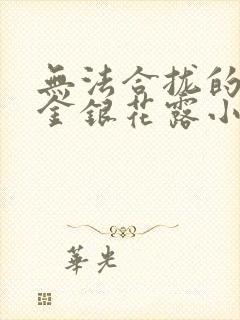 無法合拢的
金銀花露小
華光